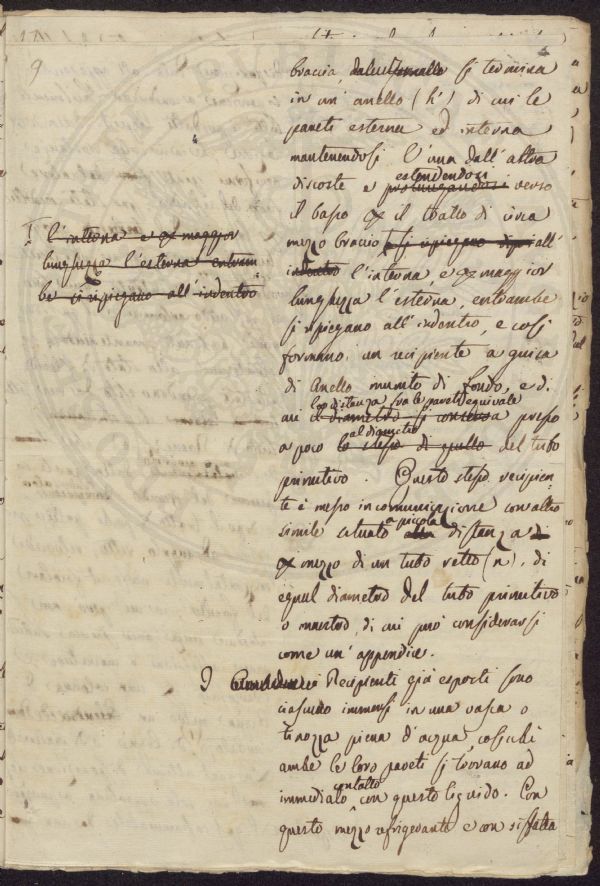 4
9
braccia, si termina
in un' anello (h') di cui le
pareti esterna ed interna
mantenendosi l'una dall'altra
discoste e prolungandosi estendendosi verso
il basso per il tratto di circa
mezzo braccio e si ripiegano all'
indentro l'interna e per maggior
lunghezza l'esterna, entrambe
si ripiegano all'indentro, e così
formano un recipiente a guisa
di anello munito di fondo, e di
cui il diametro si conserva la distanza fra le pareti equivale presso
a poco lo stesso di quello al diametro del tubo
primitivo. Questo stesso recipien-
te è messo in comunicazione con altro
simile situato alla a piccola distanza di
per mezzo di un tubo retto (n), di
egual diametro del tubo primitivo
o maestro, di cui può considerarsi
come un'appendice.
I Recipienti già esposti sono
ciascuno immersi in una vasca o
tinozza piena d'acqua, cosichè
ambe le loro pareti si trovano ad
immediato contatto con questo liquido. Con
questo mezzo refrigerante e con siffatta
l'interna e per maggior
lunghezza l'esterna entram
be si ripiegano all'indentro